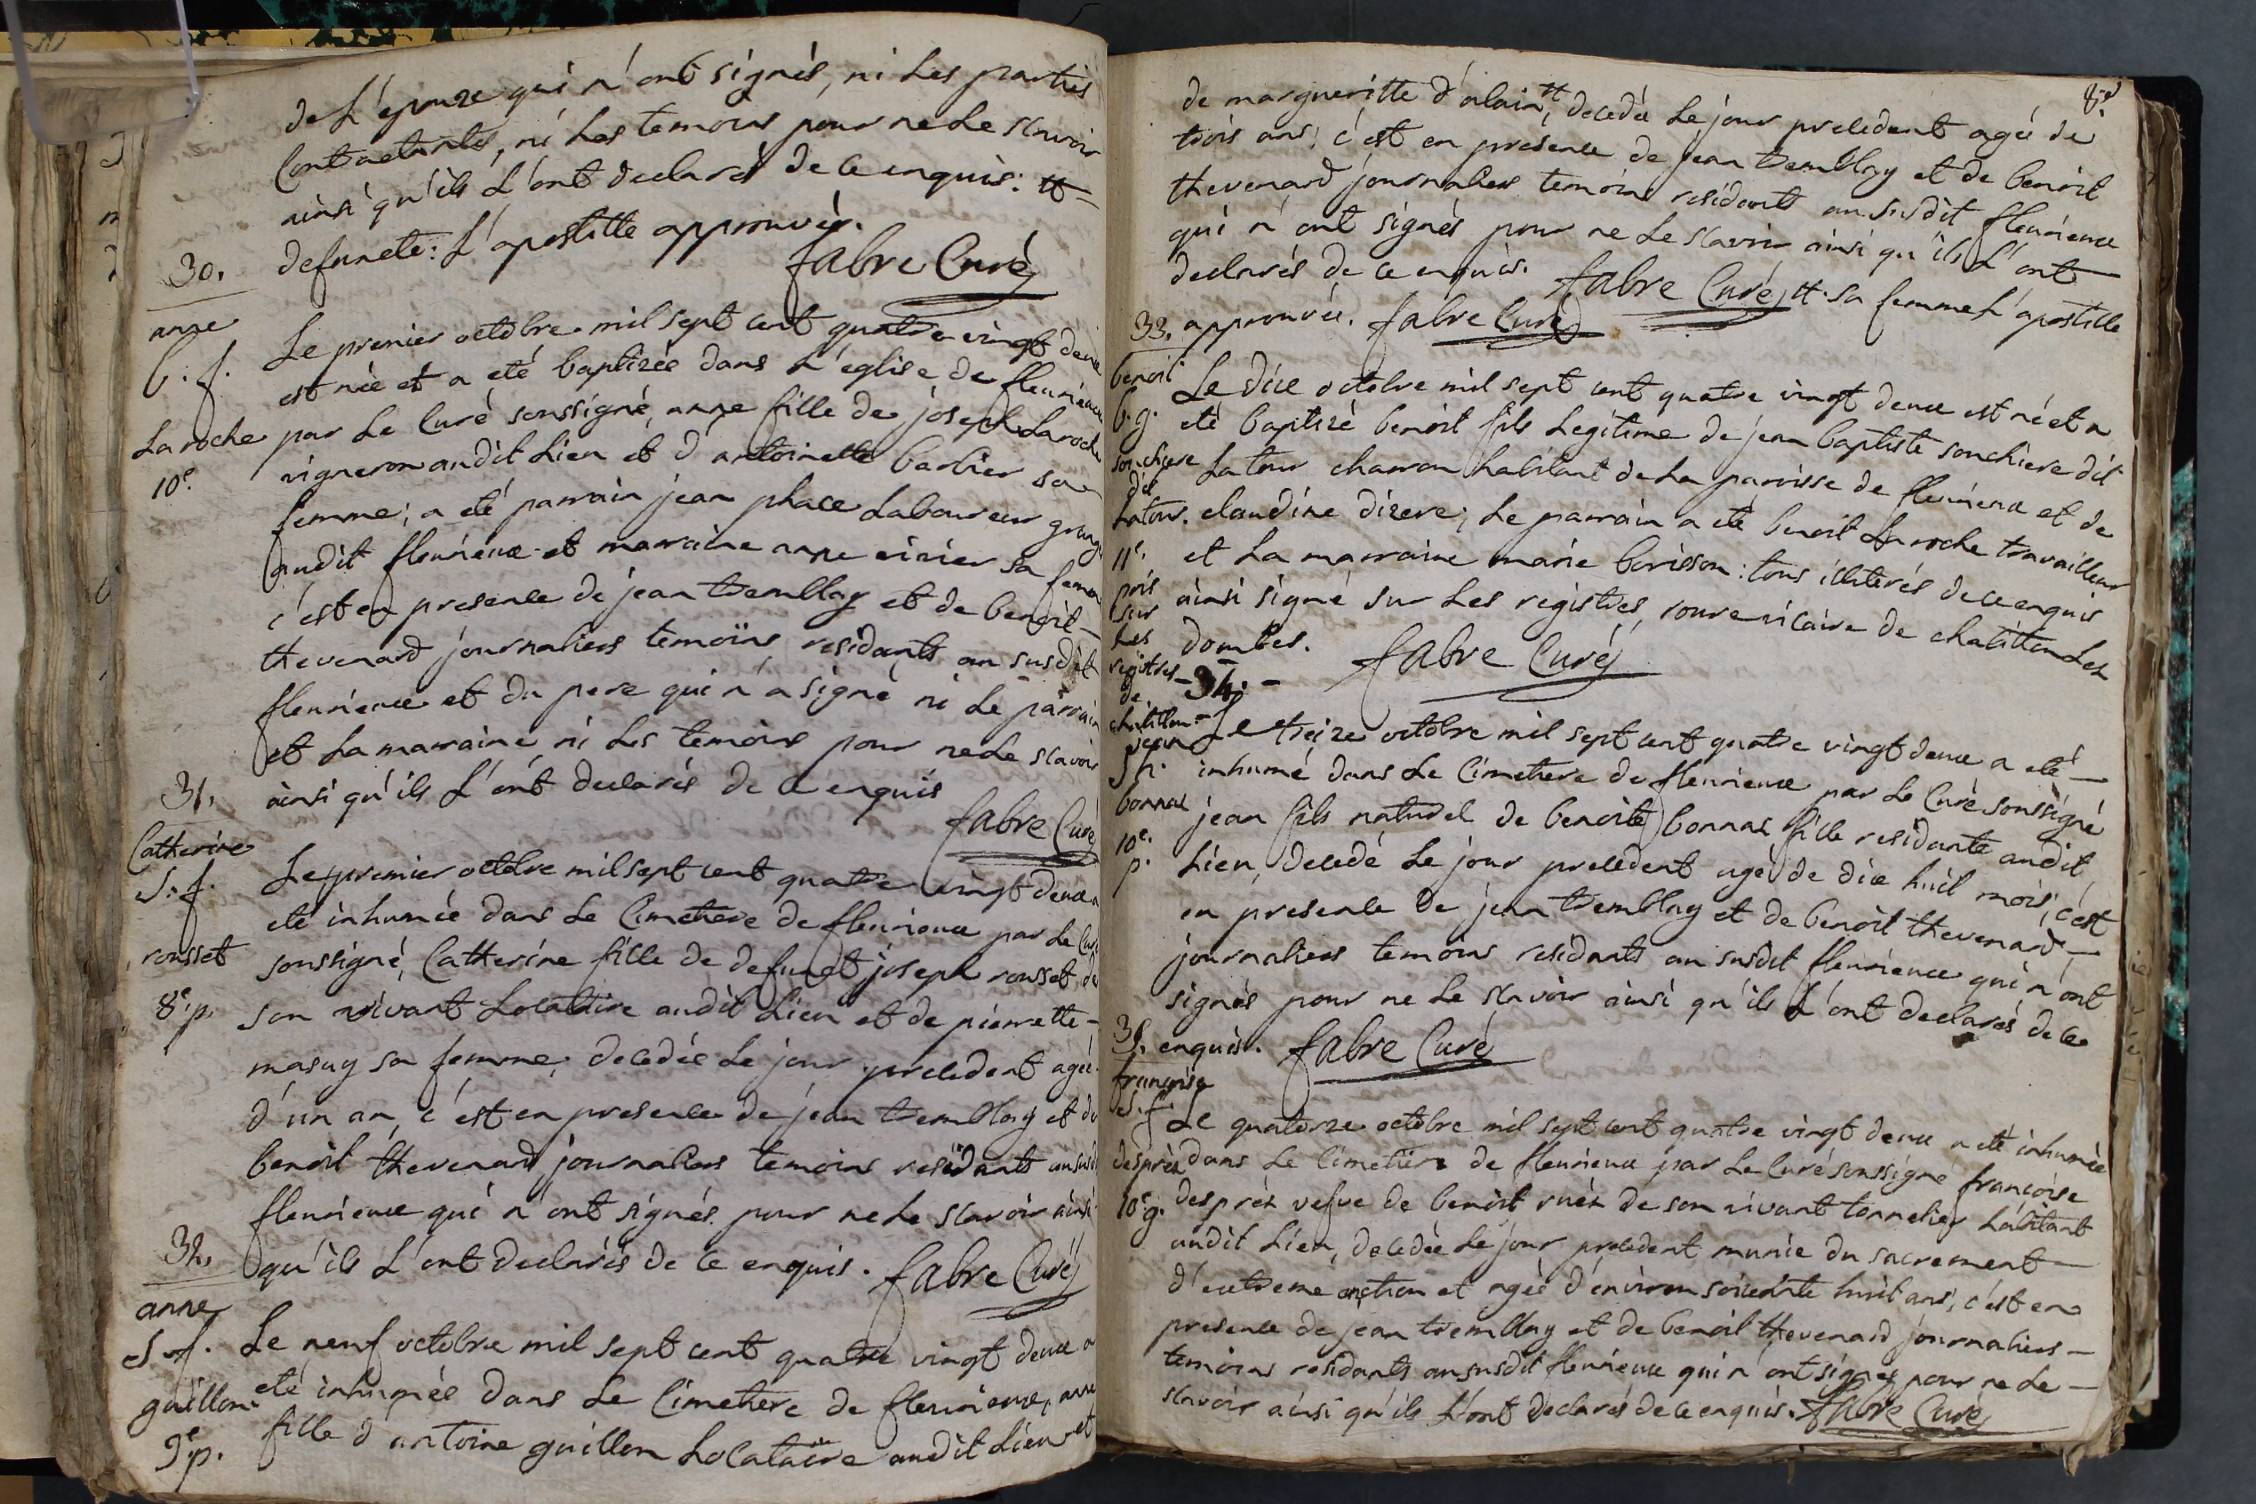 de L'épouze qui n'ont signés, ni Les parties
Contractantes, ni Les temoins pour ne Le scavoir
ainsi qu'ils L'ont declarés de ce enquis: #
defuncte: L'apostille approuvée.
fabre Curé
30.
anne
b. f.
Laroche
10e.
Le premier octobre mil sept cent quatre vingt deux
est née et a eté baptizée dans L'église de fleurieux
par Le Curé soussigné, anne fille de joseph Laroche
vigneron audit Lieu et d'antoinette barbier sa
femme; a eté parrain jean place Laboureur grang
audit fleurieux et marraine anne vivier sa femme
c'est en presence de jean tremblay et de benoit
thevenard journaliers temoins residants au susdit
fleurieux et du pere qui n'a signé ni Le parrain
et La marraine ni Les temoins pour ne Le scavoir
ainsi qu'ils L'ont declarés de ce enquis
fabre Curé
31.
Catherine
S. f.
rousset
8e. p.
Le premier octobre mil sept cent quatre vingt deux a
eté inhumée dans Le Cimetiere de fleurieux par Le Curé
soussigné, Catherine fille de defunct joseph rousset de
son vivant Locataire audit Lieu et de pierrette
masuy sa femme, decedée Le jour precedent agée
d'un an, c'est en presence de jean tremblay et de
benoit thevenard journaliers temoins residants au susdit
fleurieux qui n'ont signés pour ne Le scavoir ainsi
qu'ils L'ont declarés de ce enquis. fabre Curé
32.
anne
S. f.
guillon.
9e p.
Le neuf octobre mil sept cent quatre vingt deux a
eté inhumée dans Le Cimetiere de fleurieux, anne
fille d'antoine guillon Locataire audit Lieu et
8e
de margueritte d'alain #, decedée Le jour precedent agée de
trois ans; c'est en presence de jean tremblay et de benoit
thevenard journaliers temoins residants au susdit fleurieux
qui n'ont signés pour ne Le scavoir ainsi qu'ils L'ont
declarés de ce enquis. fabre Curé # sa femme L'apostille
approuvée. fabre Curé
33.
benoit
b. g.
sonchiere
dit
Latour.
11e.
pris
sur
Les
registres
de
chatillon
Le dix octobre mil sept cent quatre vingt deux est né et a
eté baptizé benoit fils Legitime de jean baptiste sonchiere dit
Latour charron habitant de La paroisse de fleurieux et de
claudine dizere; Le parrain a eté benoit Laroche travailleur
et La marraine marie borisson: tous illiterés de ce enquis
ainsi signé sur Les registres, roure vicaire de chatillon Les
dombes. fabre Curé
- 34. -
jean
S. g.
bonnas
10e.
p.
Le treize octobre mil sept cent quatre vingt deux a eté
inhumé dans Le Cimetiere de fleurieux par Le Curé soussigné
jean fils naturel de benoite bonnas fille residante audit
Lieu, decedé Le jour precedent agé de dix huit mois, c'est
en presence de jean tremblay et de benoit thevenard
journaliers temoins residants au susdit fleurieux qui n'ont
signés pour ne Le scavoir ainsi qu'ils L'ont declarés de ce
enquis. fabre Curé
35.
françoise
S. f.
desprèz
10e g.
Le quatorze octobre mil sept cent quatre vingt deux a eté inhumée
dans Le Cimetiere de fleurieux par Le Curé soussigné françoise
desprèz vefve de benoit ruèz de son vivant tonnelier habitant
audit Lieu, decedée Le jour precedent, munie du sacrement
d'extreme onction et agée d'environ soixante huit ans, c'est en
presence de jean tremblay et de benoit thevenard journaliers
temoins residants au susdit fleurieux qui n'ont signés pour ne Le
scavoir ainsi qu'ils L'ont declarés de ce enquis. fabre Curé